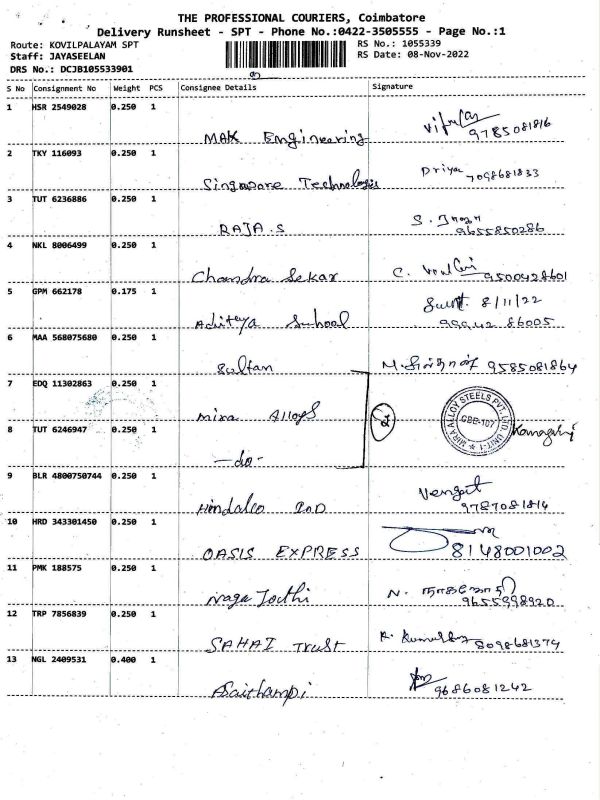 THE PROFESSIONAL COURIERS, Coimbatore
Delivery Runsheet - SPT - Phone No.:0422-3505555 - Page No.:1
Route: KOVILPALAYAM SPT RS No.: 1055339
Staff: JAYASEELAN RS Date: 08-Nov-2022
DRS No.: DCJB105533901
S No Consignment No Weight PCS Consignee Details Signature
1 HSR 2549028 0.250 1
MAK Engineering 9785081816
2 TKY 116093 0.250 1
Singapore Technologies Priya 7098681833
3 TUT 6236886 0.250 1
RAJA.S S. 9655850286
4 NKL 8006499 0.250 1
Chandra Sekar C. 9500428601
5 GPM 662178 0.175 1 8/11/22
Aditya School 99942 86005
6 MAA 568075680 0.250 1
Sultan M. 9585081864
7 EDQ 11302863 0.250 1
Mira Alloys 2 MIRA ALLOY STEELS PVT. LTD. UNIT-1 CBE-107
8 TUT 6246947 0.250 1
-do-
9 BLR 4800750744 0.250 1
Hindalco IND Vengat 9787081814
10 HRD 343301450 0.250 1
OASIS EXPRESS 8148001002
11 PMK 188575 0.250 1
Naga Jothi N. நாகஜோதி 9655998920
12 TRP 7856839 0.250 1
SAHAI TRUST R. 8098681374
13 NGL 2409531 0.400 1
Asaithampi 9686081242